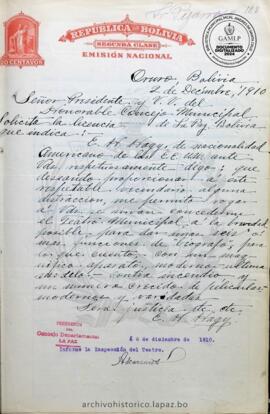 REPUBLICA DE BOLIVIA
SEGUNDA CLASE
EMISIÓN NACIONAL
20 CENTAVOS
GAMLP
DOCUMENTO
DIGITALIZADO
2024
Oruro, Bolivia
2 de Decembre, 1910
Señor Presidente y V.V. del
Honorable Concejo Municipal
Solicita la licencia de La Paz Bolivia
que indica!
E. H. Hagy, de nacionalidad
Americano de los EE. UU. ante
Uds respetuosamente digo; que
deseando proporcionar a este
respetable vecindario alguna
distracción, me permito rogar
a Uds se sirvan concederme
el Teatro Municipal, a la brevedad
posible, para dar unas seis o
mas funciones de biografo, para
lo que cuento con un mag-
nifico aparato, moderno ultimo
modelo contra incendio y
un numero crecido de peliculas
modernas y variadas
Será justicia etc. etc.
E. H. Hagy
PRESIDENCIA
DEL
Concejo Departamental
LA PAZ
de diciembre de 1910.
Informe la Inspección del Teatro.
archivohistorico.lapaz.bo